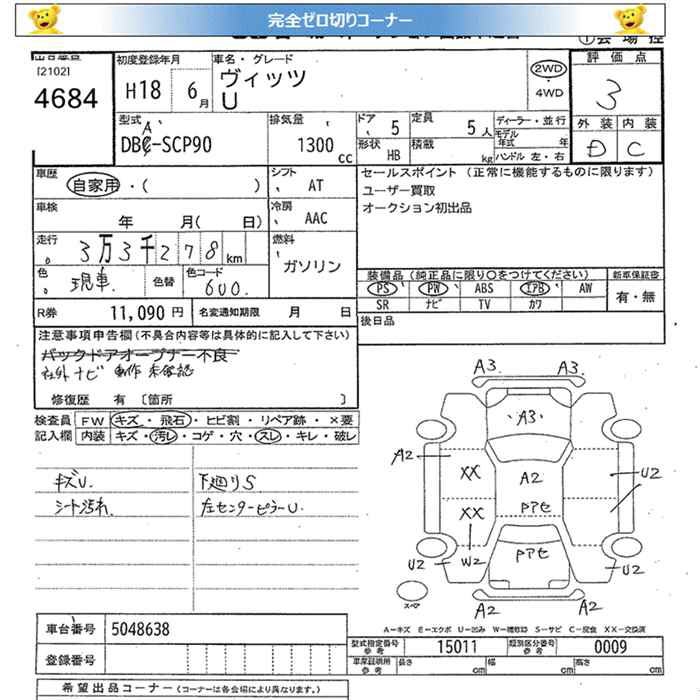 完全ゼロ切りコーナー
[2102]
4684
初度登録年月
H18 6月
車名・グレード
ヴィッツ
U
2WD
・
4WD
評価点
3
外装 内装
D C
型式
DBA-SCP90
排気量
1300 cc
ドア
5
定員
5人
形状
HB
積載
kg
ディーラー・並行
モデル
年式 年
ハンドル 左・右
車歴
自家用・( )
シフト
AT
セールスポイント (正常に機能するものに限ります)
ユーザー買取
オークション初出品
車検
年 月( 日)
冷房
AAC
走行
3万3千278km
燃料
ガソリン
色
現車.
色替
色コード
600.
装備品(純正品に限り○をつけてください)
新車保証書
PS PW ABS エアB AW
SR ナビ TV カワ
有・無
R券 11,090円
名変通知期限 月 日
後日品
注意事項申告欄(不具合内容等は具体的に記入して下さい)
バックドアオープナー不良
社外ナビ 動作未確認
修復歴 有 [箇所 ]
検査員
記入欄
FW キズ・飛石・ヒビ割・リペア跡・×要
内装 キズ・汚レ・コゲ・穴・スレ・キレ・破レ
キズU.
シート汚れ.
下廻りS
左センターピラーU.
A3. A3.
A3
A2
XX
A2
U2
XX
Pアセ
W2
Pアセ
U2
U2
A2 A2
スペア
A-キズ E-エクボ U-凹み W-補修跡 S-サビ C-腐食 XX-交換済
車台番号 5048638
登録番号
型式指定番号
参考
15011
類別区分番号
参考
0009
車庫証明用
参考
長さ cm 幅 cm 高さ cm
希望出品コーナー(コーナーは各会場により異なります。)